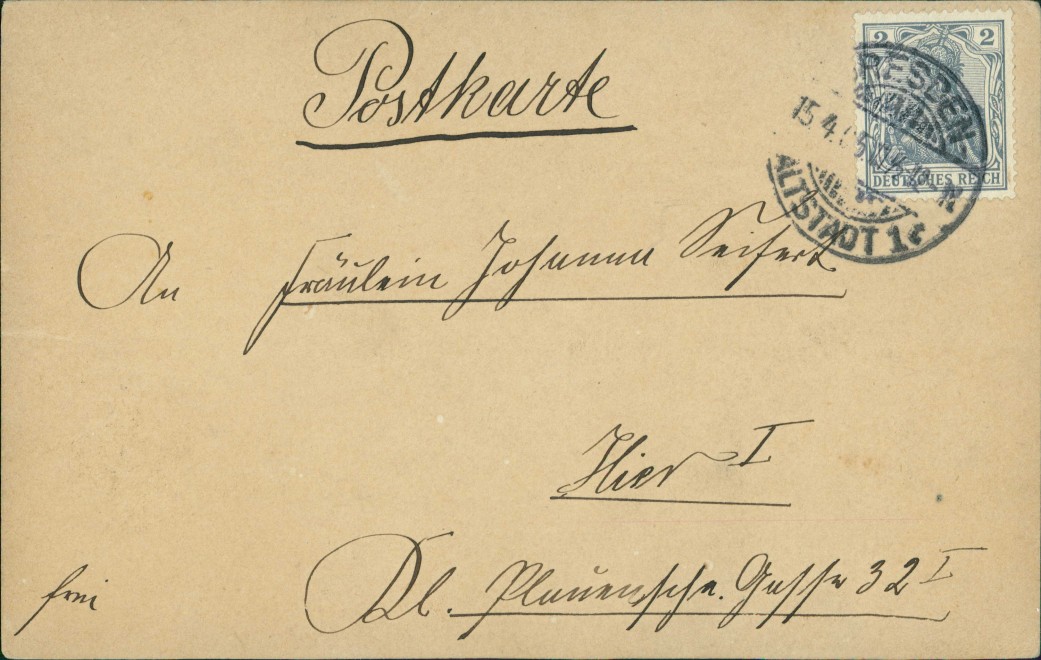 Postkarte
2 2
DEUTSCHES REICH
DRESDEN-
15.4.05.
ALTSTADT 1c
An Fräulein Johanna Seifert
Hier I
Kl. Plauensche. Gasse 32 I
frei